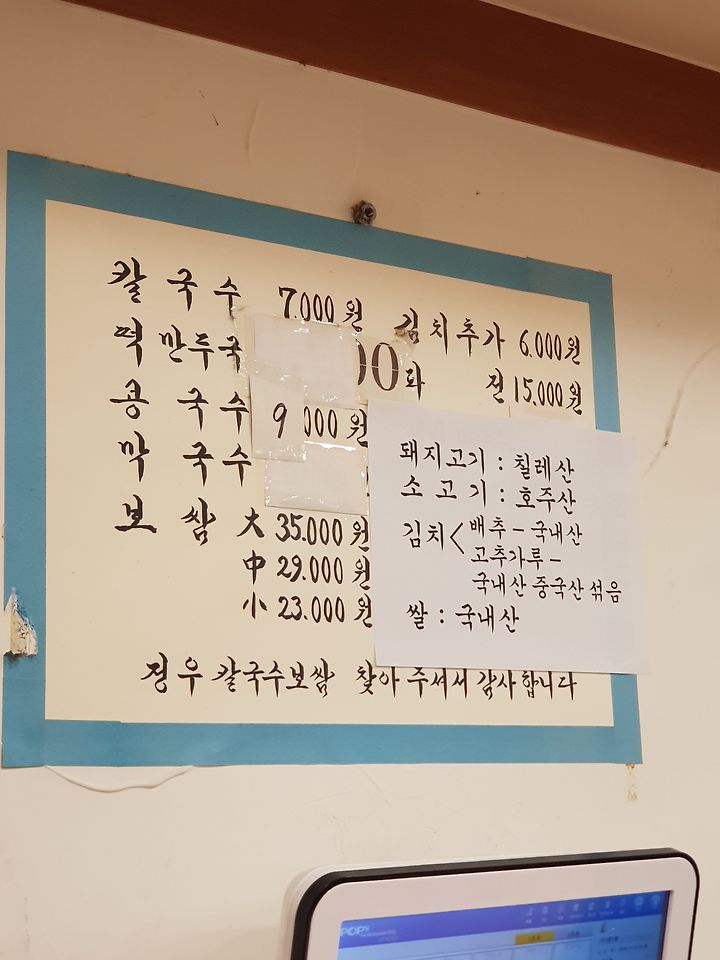 칼국수 7.000원 김치추가 6.000원
떡만두국 00 전 15.000원
콩국수 9 000원
막국수
보쌈 大 35.000원
中 29.000원
小 23.000원
정우칼국수보쌈 찾아주셔서감사합니다
돼지고기 : 칠레산
소고기 : 호주산
김치< 배추 - 국내산
고추가루 -
국내산 중국산 섞음
쌀 : 국내산
POP